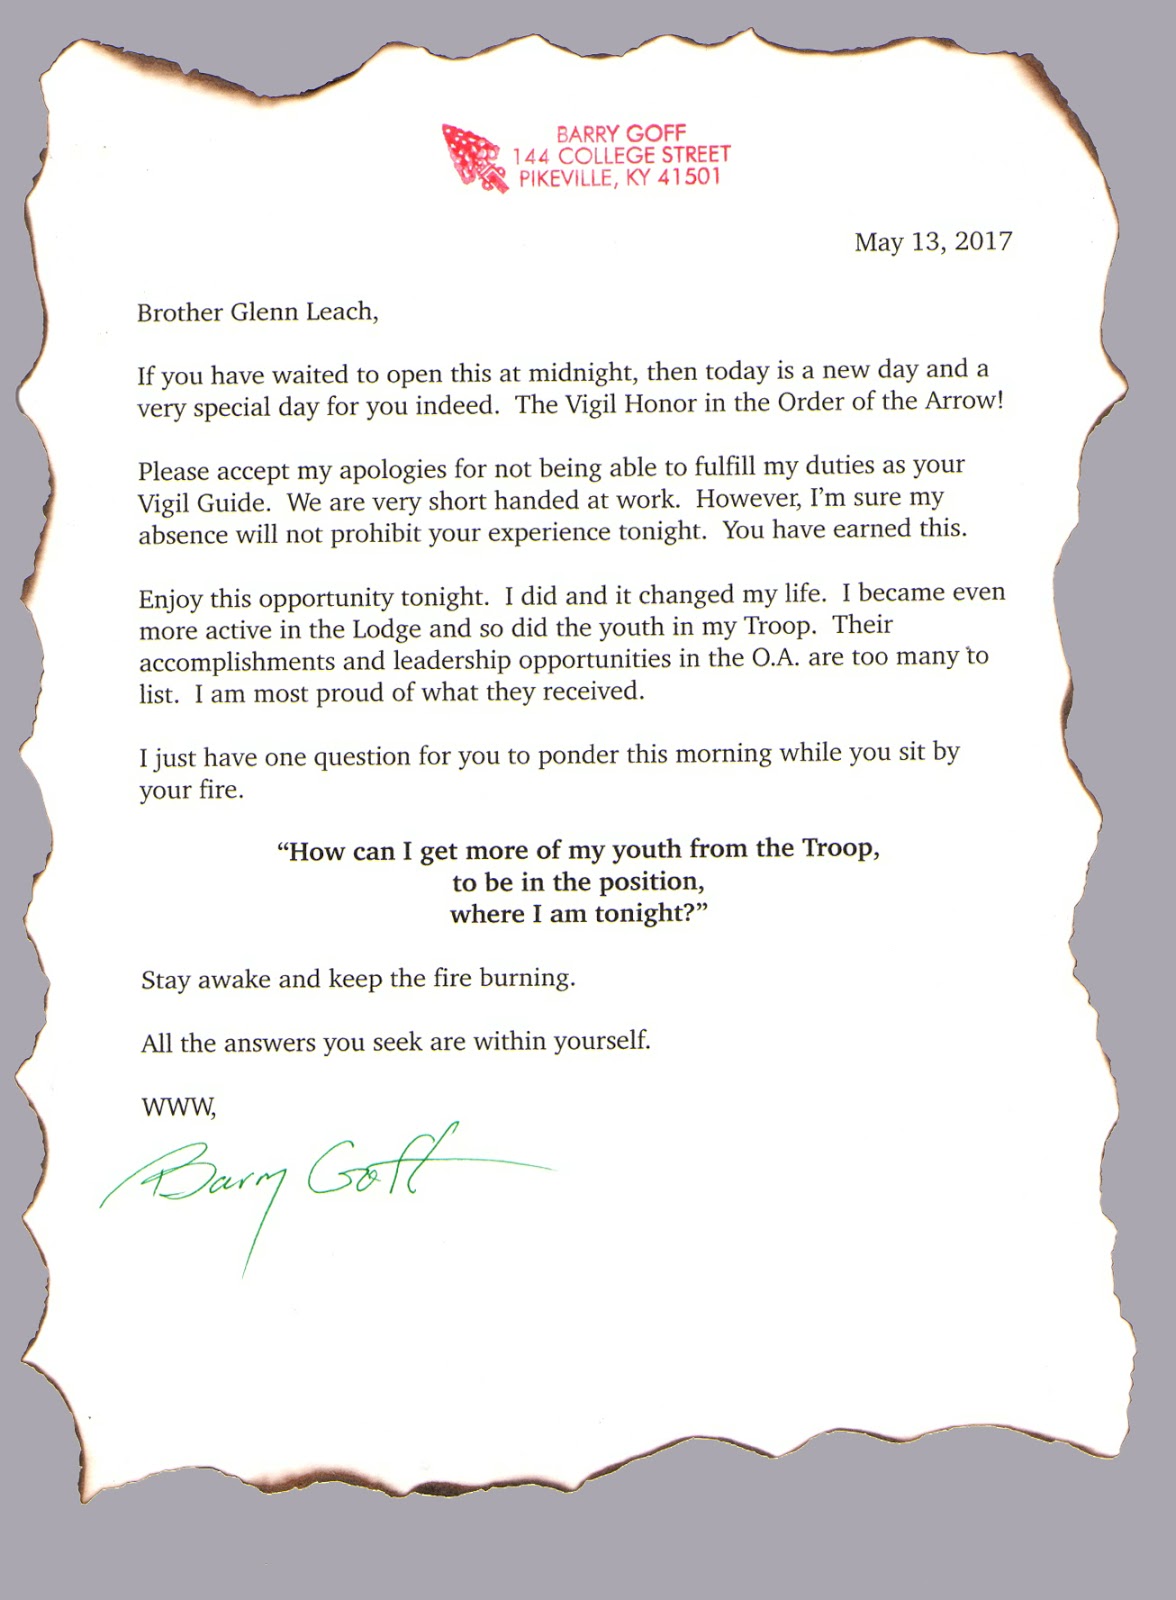 BARRY GOFF
144 COLLEGE STREET
PIKEVILLE, KY 41501
May 13, 2017
Brother Glenn Leach,
If you have waited to open this at midnight, then today is a new day and a
very special day for you indeed.  The Vigil Honor in the Order of the Arrow!
Please accept my apologies for not being able to fulfill my duties as your
Vigil Guide.  We are very short handed at work.  However, I'm sure my
absence will not prohibit your experience tonight.  You have earned this.
Enjoy this opportunity tonight.  I did and it changed my life.  I became even
more active in the Lodge and so did the youth in my Troop.  Their
accomplishments and leadership opportunities in the O.A. are too many to
list.  I am most proud of what they received.
I just have one question for you to ponder this morning while you sit by
your fire.
“How can I get more of my youth from the Troop,
to be in the position,
where I am tonight?”
Stay awake and keep the fire burning.
All the answers you seek are within yourself.
WWW,
Barry Goff